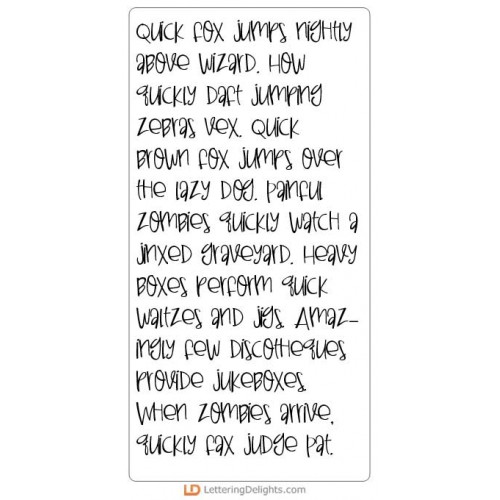 Quick fox jumps nightly
above wizard. How
quickly daft jumping
zebras vex. Quick
brown fox jumps over
the lazy dog. Painful
zombies quickly watch a
jinxed graveyard. Heavy
boxes perform quick
waltzes and jigs. Amaz-
ingly few discotheques
provide jukeboxes.
When zombies arrive,
quickly fax Judge Pat.
LD LetteringDelights.com